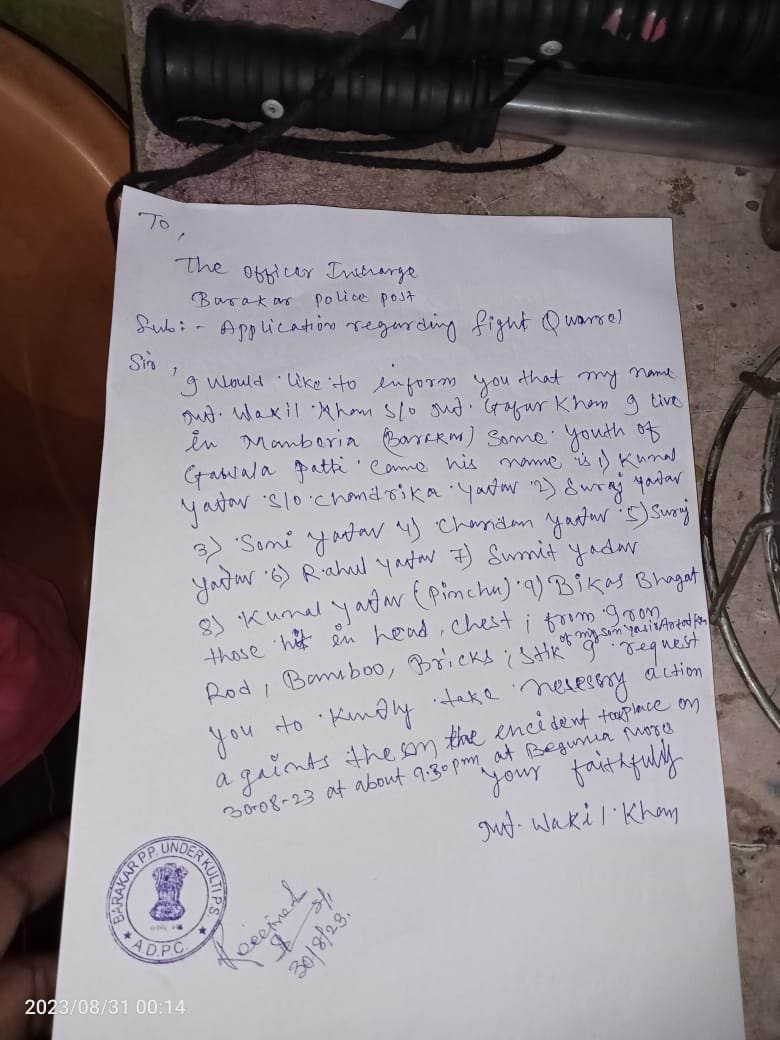 To,
The Officer Incharge
Barakar police post
Sub:- Application regarding fight Quarrel
Sir,
I would like to inform you that my name
Md. Wakil Khan S/o Md. Gafur Khan I live
in Manberia (Barakar) Some youth of
Gawala patti came his name is 1) Kunal
Yadav S/o Chandrika Yadav 2) Suraj Yadav
3) Somi Yadav 4) Chandan Yadav 5) Suraj
Yadav 6) Rahul Yadav 7) Sumit Yadav
8) Kunal Yadav (Pinchu) 9) Bikas Bhagat
those hit in head, chest ; from Iron
Rod, Bamboo, Bricks ; Stik of my son I request
you to kindly take nesessry action
againts them the encident tooplace on
30-08-23 at about 9:30 pm at Begunia More
your faithfully
Md. Wakil Khan
BARAKAR P.P. UNDER KULTI P.S.
★ A.D.P.C. ★
Received
30/8/23.
2023/08/31 00:14